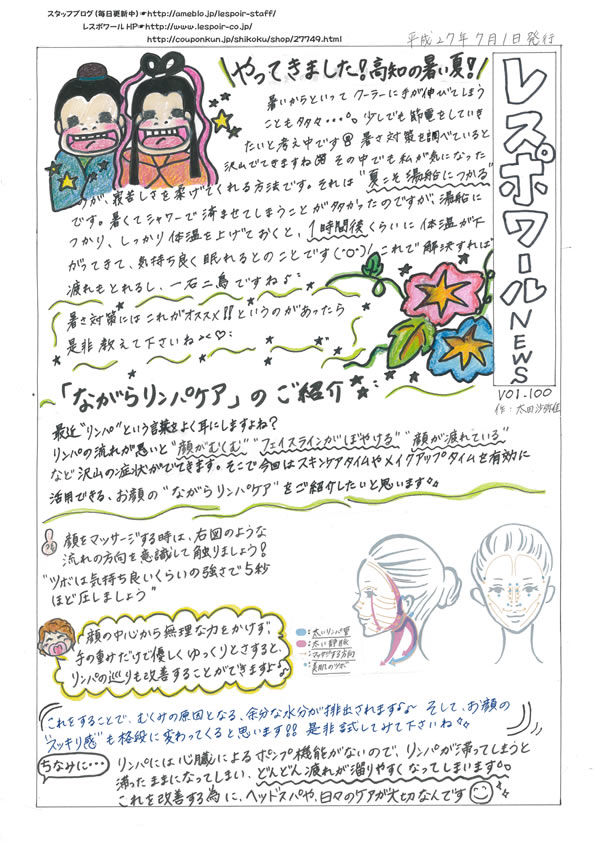 スタッフブログ（毎日更新中）☞http://ameblo.jp/lespoir-staff/
レスポワール HP☞http://www.lespoir-co.jp/
http://couponkun.jp/shikoku/shop/27749.html
平成27年7月1日発行
レスポワールNEWS
VOl.100
作：太田沙弥佳
やってきました！高知の暑い夏！
暑いからといってクーラーに手が伸びてしまう
ことも多々・・・。少しでも節電をしていき
たいと考え中です 暑さ対策を調べていると
沢山でてきますね その中でも私が気になった
のが、寝苦しさを柔げてくれる方法です。それは"夏こそ湯船につかる"
です。暑くてシャワーで済ませてしまうことが多かったのですが、湯船に
つかり、しっかり体温を上げておくと、1時間後くらいに体温が下
がってきて、気持ち良く眠れるとのことです(^o^)/これで解決すれば
疲れもとれるし、一石二鳥ですね♪
暑さ対策にはこれがオススメ!!というのがあったら
是非教えて下さいね♡
「ながらリンパケア」のご紹介
最近"リンパ"という言葉をよく耳にしますよね？
リンパの流れが悪いと"顔がむくむ""フェイスラインがぼやける""顔が疲れている"
など沢山の症状がでてきます。そこで今回はスキンケアタイムやメイクアップタイムを有効に
活用できる、お顔の"ながらリンパケア"をご紹介したいと思います♪
顔をマッサージする時は、右図のような
流れの方向を意識して触りましょう！
"ツボは気持ち良いくらいの強さで5秒
ほど圧しましょう"
顔の中心から無理な力をかけず、
手の重みだけで優しくゆっくりとさすると、
リンパの巡りも改善することができますよ♪
：太いリンパ管
：太い静脈
：マッサージする方向
：美肌のツボ
これをすることで、むくみの原因となる、余分な水分が排出されます♪ そして、お顔の
"スッキリ感"も格段に変わってくると思います!! 是非試してみて下さいね♪
ちなみに・・・
リンパには心臓によるポンプ機能がないので、リンパが滞ってしまうと
滞ったままになってしまい、どんどん疲れが溜りやすくなってしまいます。
これを改善する為に、ヘッドスパや、日々のケアが大切なんです